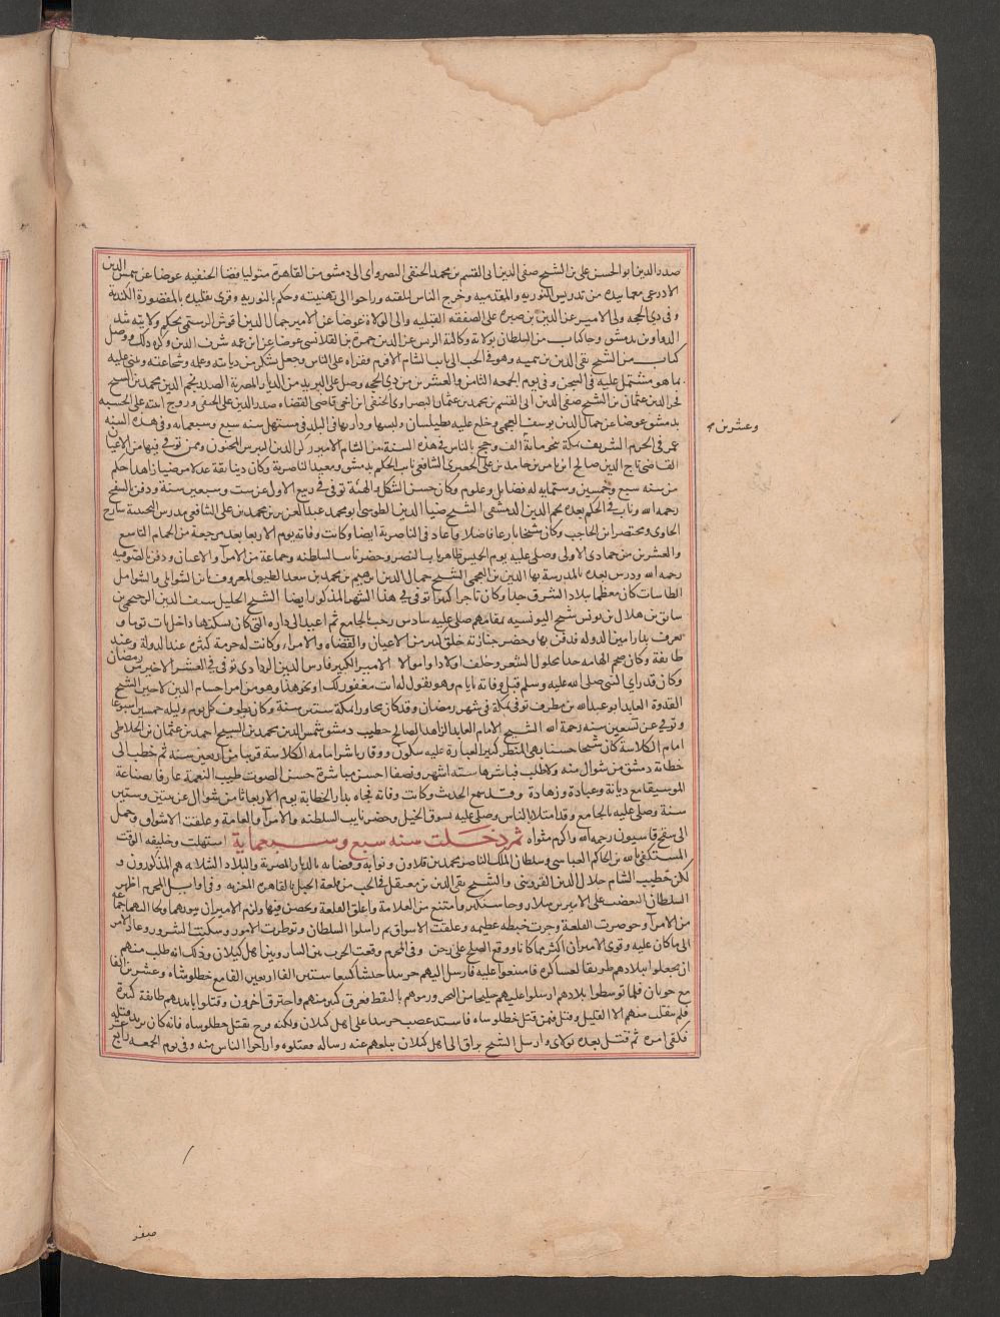 صدر الدين ابو الحسن على بن الشيخ صفى الدين ابى القسم بن محمد الحنفى البصراوى الى دمشق من القاهرة متوليا قضا الحنفيه عوضا عن شمس الدين
الادرعى مع ما بيده من تدريس النوريه والمقدميه وخرج الناس لتلقيه وراحوا الى تهنيته وحكم بالنوريه وقرى تقليده بالمقصورة الكندية
وفى ذى الحجه ولى الامير عز الدين بن صبره على الصفقه القبليه والى الولاة عوضا عن الامير جمال الدين اقوش الرستمى بحكم ولايته شد
الدواوين بدمشق وجا كتاب من السلطان بولاية وكالته الريس عز الدين حمزة بن القلانسى عوضا عن ابن عمه شرف الدين وكره ذلك ووصل
كتاب من الشيخ تقى الدين بن تيميه وهو فى الجب الى نايب الشام الافرم وقراه على الناس وجعل يشكر من ديانته وعلمه وشجاعته ويثنى عليه
بما هو مشتمل عليه فى السجن وفى يوم الجمعه الثامن والعشرين من ذى الحجه وصل على البريد من الديار المصرية الصدر نجم الدين محمد بن الشيخ
فخر الدين عثمان بن الشيخ صفى الدين ابى القسم بن محمد بن عثمان البصراوى الحنفى ابن اخى قاضى القضاه صدر الدين على الحنفى وزوج ابنته على الحسبه
بدمشق عوضا عن جمال الدين يوسف العجمى وخلع عليه بطيلسان ولبسها ودار بها فى البلد فى مستهل سنه سبع وسبعمايه وفى هذه السنه
وعشرين
عمر فى الحرم الشريف بمكة بنحو مائة الف وحج بالناس فى هذه السنة من الشام الامير ركن الدين بيبرس المجنون وممن توفى فيها من الاعيان
القاضى تاج الدين صالح بن ثامر بن حامد بن على الجعبرى الشافعى نايب الحكم بدمشق ومعيد الناصرية وكان دينا ثقة عدلا مرضيا زاهدا حكم
من سنه سبع وخمسين وستمايه له فضايل وعلوم وكان حسن الشكل والهيئة توفى فى ربيع الاول عن ست وسبعين سنة ودفن بالسفح
رحمه الله وناب فى الحكم بعده نجم الدين الدمشقى الشيخ ضيا الدين الطوسى ابو محمد عبد العزيز بن محمد بن على الشافعى مدرس النجيبية شارح
الحاوى ومختصر ابن الحاجب وكان شيخا بارعا فاضلا واعاد فى الناصرية ايضا وكانت وفاته يوم الاربعا بعد مرجعه من الحمام التاسع
والعشرين من جمادى الاولى وصلى عليه يوم الخميس ظاهر باب النصر وحضر نايب السلطنه وجماعة من الامرآ والاعيان ودفن بالصوفيه
رحمه الله ودرس بعده بالمدرسة بها الدين بن العجمى الشيخ جمال الدين ابرهيم بن محمد بن سعد الطيبى المعروف بابن السوابلى والسوابل
الطاسات كان معظما ببلاد الشرق جدا وكان تاجرا كبيرا توفى فى هذا الشهر المذكور ايضا الشيخ الجليل سيف الدين الرجيحى بن
سابق بن هلال بن يونس شيخ اليونسيه بمقامهم صلى عليه سادس رجب بالجامع ثم اعيد الى داره التى كان يسكنها داخل باب توما و
تعرف بدار امين الدوله فدفن بها وحضر جنازته خلق كثير من الاعيان والقضاه والامراء وكانت له حرمة كبيره عند الدولة وعند
طايفة وكان ضخم الهامه جدا محلول الشعر وخلف اولادا واموالا الامير الكبير فارس الدين الردادى توفى فى العشر الاخير من رمضان
وكان قد راى النبى صلى الله عليه وسلم قبل وفاته بايام وهو يقول له انت مغفور لك او نحو هذا وهو من امرا حسام الدين لاجين الشيخ
القدوة العابد ابو عبد الله بن مطرف توفى بمكة فى شهر رمضان وقد كان مجاورا بمكة ستين سنة وكان يطوف كل يوم وليله خمسين اسبوعا
وتوفى عن تسعين سنه رحمه الله الشيخ الامام العابد الزاهد الصالح خطيب دمشق شمس الدين محمد بن الشيخ احمد بن عثمان بن الخلاطى
امام الكلاسة كان شيخا حسنا بهى المنظر كثير العبادة عليه سكون ووقار باشر امامه الكلاسة قريبا من اربعين سنه ثم خطب الى
خطابة دمشق من شوال منه ولا طلب فباشرها سته اشهر ونصفا احسن مباشرة حسن الصوت طيب النغمة عارفا بصناعة
الموسيقا مع ديانة وعبادة وزهادة وقد سمع الحديث وكانت وفاته فجاه بدار الخطابة يوم الاربعا ثامن شوال عن ثنتين وستين
سنة وصلى عليه بالجامع وقد امتلا بالناس وصلى عليه بسوق الخيل وحضر نايب السلطنه والامرآ والعامة وغلقت الاسواق وحمل
الى سفح قاسيون رحمه الله واكرم مثواه ثم دخلت سنه سبع وسبعماية استهلت وخليفه الوقت
المستكفى بالله بن الحاكم العباسى وسلطان الملك الناصر محمد بن قلاون ونوابه وقضاته بالديار المصرية والبلاد الشلاثه هم المذكورون و
لكن خطيب الشام جلال الدين القزوينى والشيخ تقى الدين بن معتقل فى الجب من قلعة الجبل بالقاهره المعزيه وفى اوايل المحرم اظهر
السلطان الغضب على الاميرين سلار وجاشنكير وامتنع من العلامة واغلق القلعة وتحصن فيها ولزم الاميران بيوتهما ولجا اليهما جماعة
من الامرآ وحوصرت القلعة وجرت خبطه عظيمه وغلقت الاسواق ثم راسلوا السلطان وتوطدت الامور وسكنت الشرور وعاد الامر
الى ما كان عليه وقوى الاميران اكثر مما كانا ووقع الصلح على دخن وفى المحرم وقعت الحرب بين التتار وبين اهل كيلان وذلك انه طلب منهم
ان يجعلوا ببلادهم طريقا لعساكره فامتنعوا عليه فارسل اليهم خربندا جيشا كثيفا ستين الفا اربعين الفا مع خطلوشاه وعشرين الفا
مع جوبان فلما توسطوا بلادهم ارسلوا عليهم خليجا من البحر ورموهم بالنفط فغرق كثير منهم واحترق اخرون وقتلوا بايديهم طايفة كثيرة
فلم يفلت منهم الا القليل وقتل فيمن قتل خطلوشاه فاشتد غضب خربندا على اهل كيلان ولكنه فرح بقتل خطلوشاه فانه كان يريد قتله
فكفى امره ثم قتل بعده بولاى وارسل الشيخ براق الى اهل كيلان يبلغهم عنه رساله فقتلوه واراحوا الناس منه وفى يوم الجمعه رابع عشر
صفر